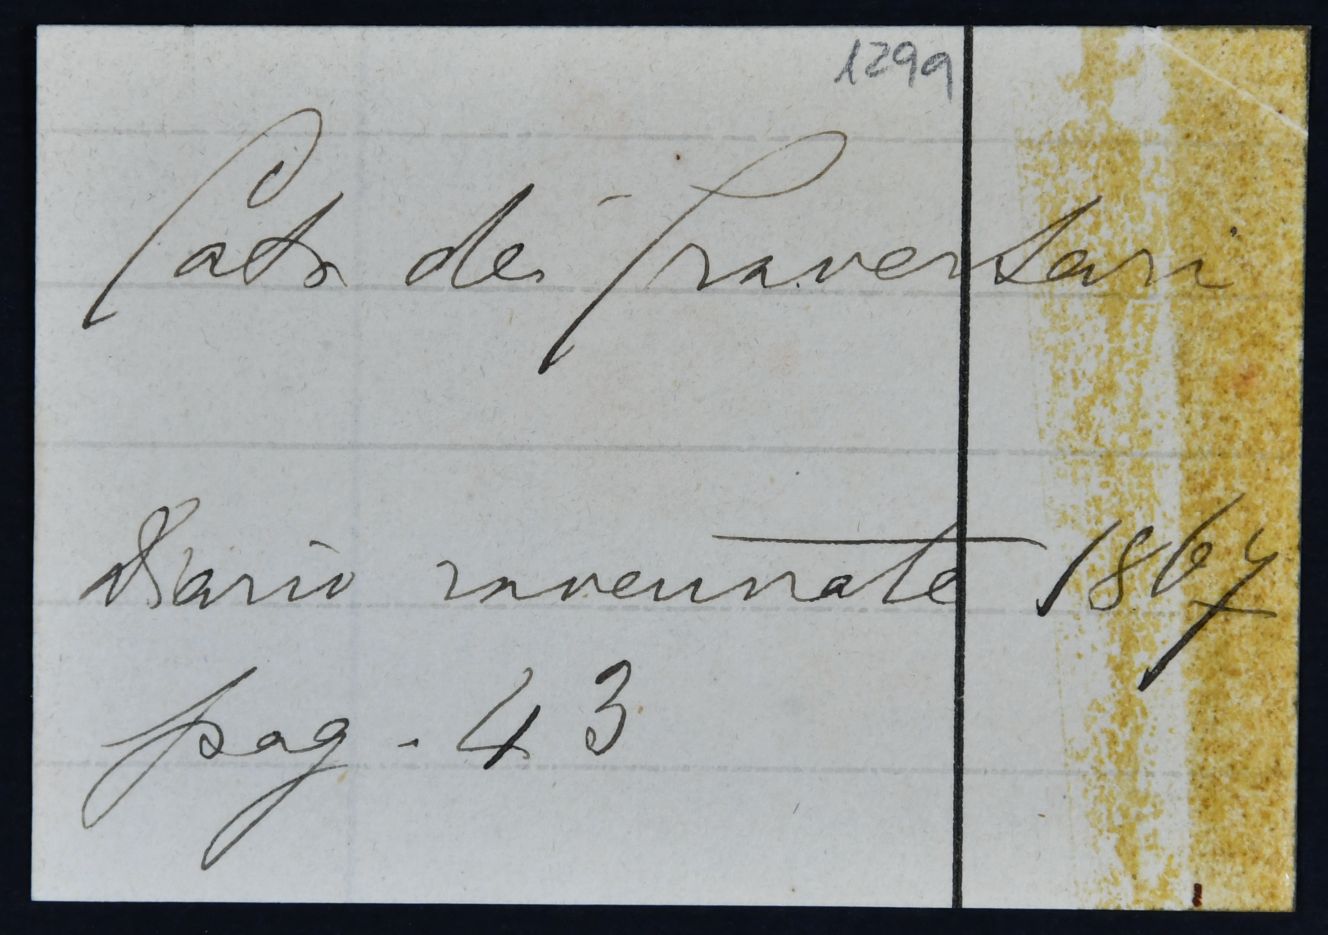 1299
Casa dei Traversari
Diario ravennate 1867
pag. 43